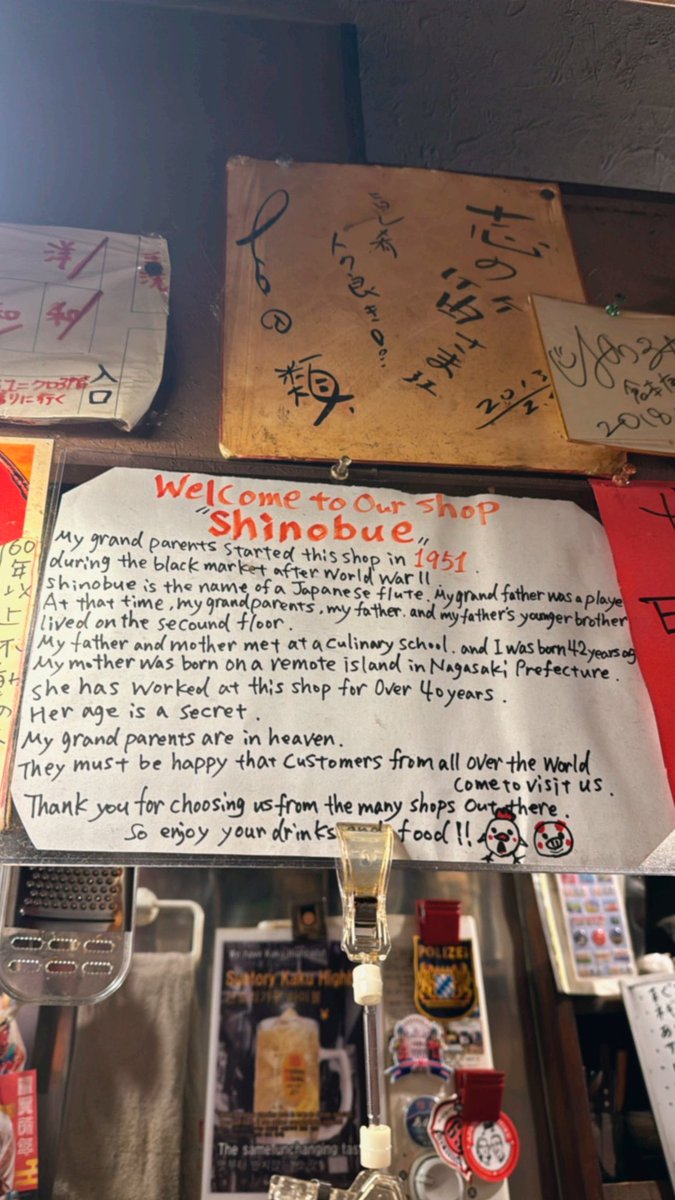 洋
和
入口
志の笛さま江
類
2013/2
2018
Welcome to Our Shop
"Shinobue"
My grand parents started this shop in 1951
during the black market after World War II
shinobue is the name of a Japanese flute. My grand father was a playe
At that time, my grandparents, my father. and my father's younger brother
lived on the secound floor.
My father and mother met at a culinary school. and I was born 42 years ag
My mother was born on a remote island in Nagasaki Prefecture.
She has worked at this shop for over 40 years.
Her age is a secret.
My grand parents are in heaven.
They must be happy that customers from all over the world
come to visit us.
Thank you for choosing us from the many shops out there.
So enjoy your drinks and food!!
60年以上
Suntory Kaku High
The same unchanging tas
POLIZEI